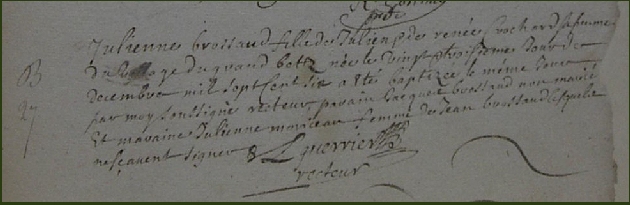 Julienne brossaud fille de Julien & de renée Crochard sa femme
du village du grand betz née le vingt troisieme Jour de
decembre mil sept cent six a été baptizée le même Jour
par moy soussigné recteur parain Jacques brossaud non marié
Et maraine Julienne femme de Jean brossaud lesquels
ne sçavent signer
L guerrier
recteur
B
27